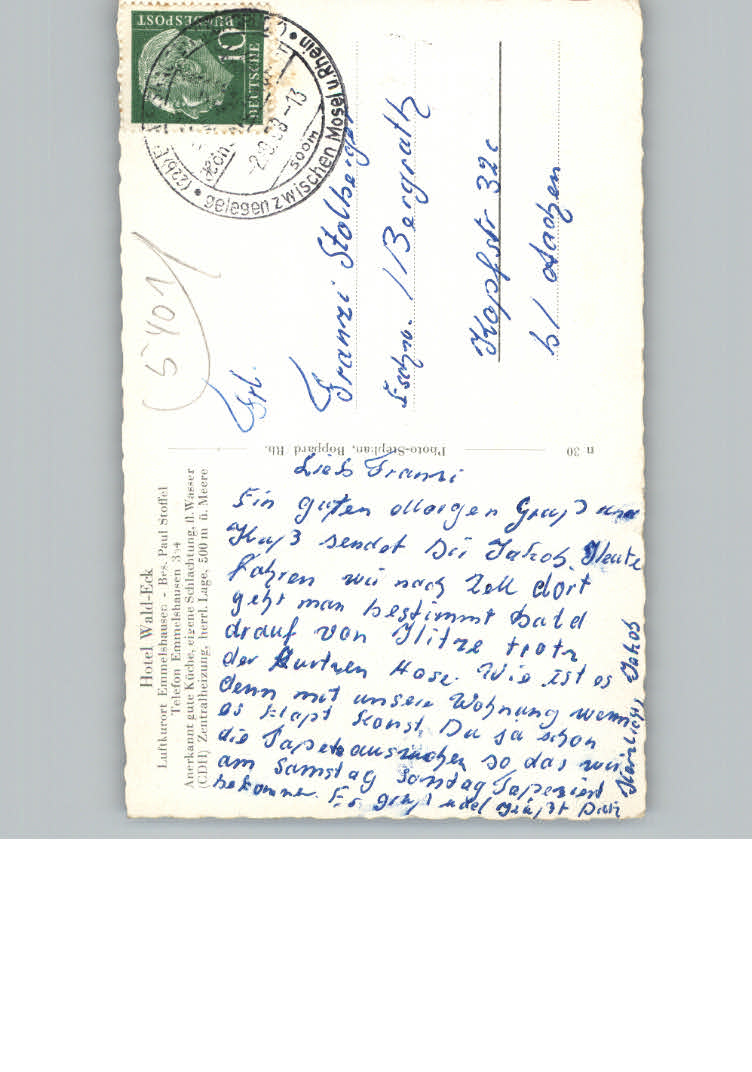 Hotel Wald-Eck
Luftkurort Emmelshausen - Bes. Paul Stoffel
Telefon Emmelshausen 334
Anerkannt gute Küche, eigene Schlachtung, fl. Wasser
(CDH) Zentralheizung, herrl. Lage, 500 m ü. Meere
Lieb Franzi
Ein guten Morgen Gruß und
Kuß sendet Dir Jakob. Heute
fahren wir nach Zell dort
geht man bestimmt bald
drauf von Hitze trotz
der kurtzen Hose. Wie ist es
denn mit unsere Wohnung wenn
es klapt konst Du ja schon
die Tapete aussuchen so das wir
am Samstag Sontag Tapeziert
bekommen.
Herzlichst Jakob
n 30
Photo-Stephan, Boppard Rh.
DEUTSCHE
BUNDESPOST
10
(22b)
-2.8.58-13
500m
gelegen zwischen Mosel u Rhein
(5401)
Frl.
Franzi Stolberger
Eschw. / Bergrath
Kopfstr 32c
b/ Aachen